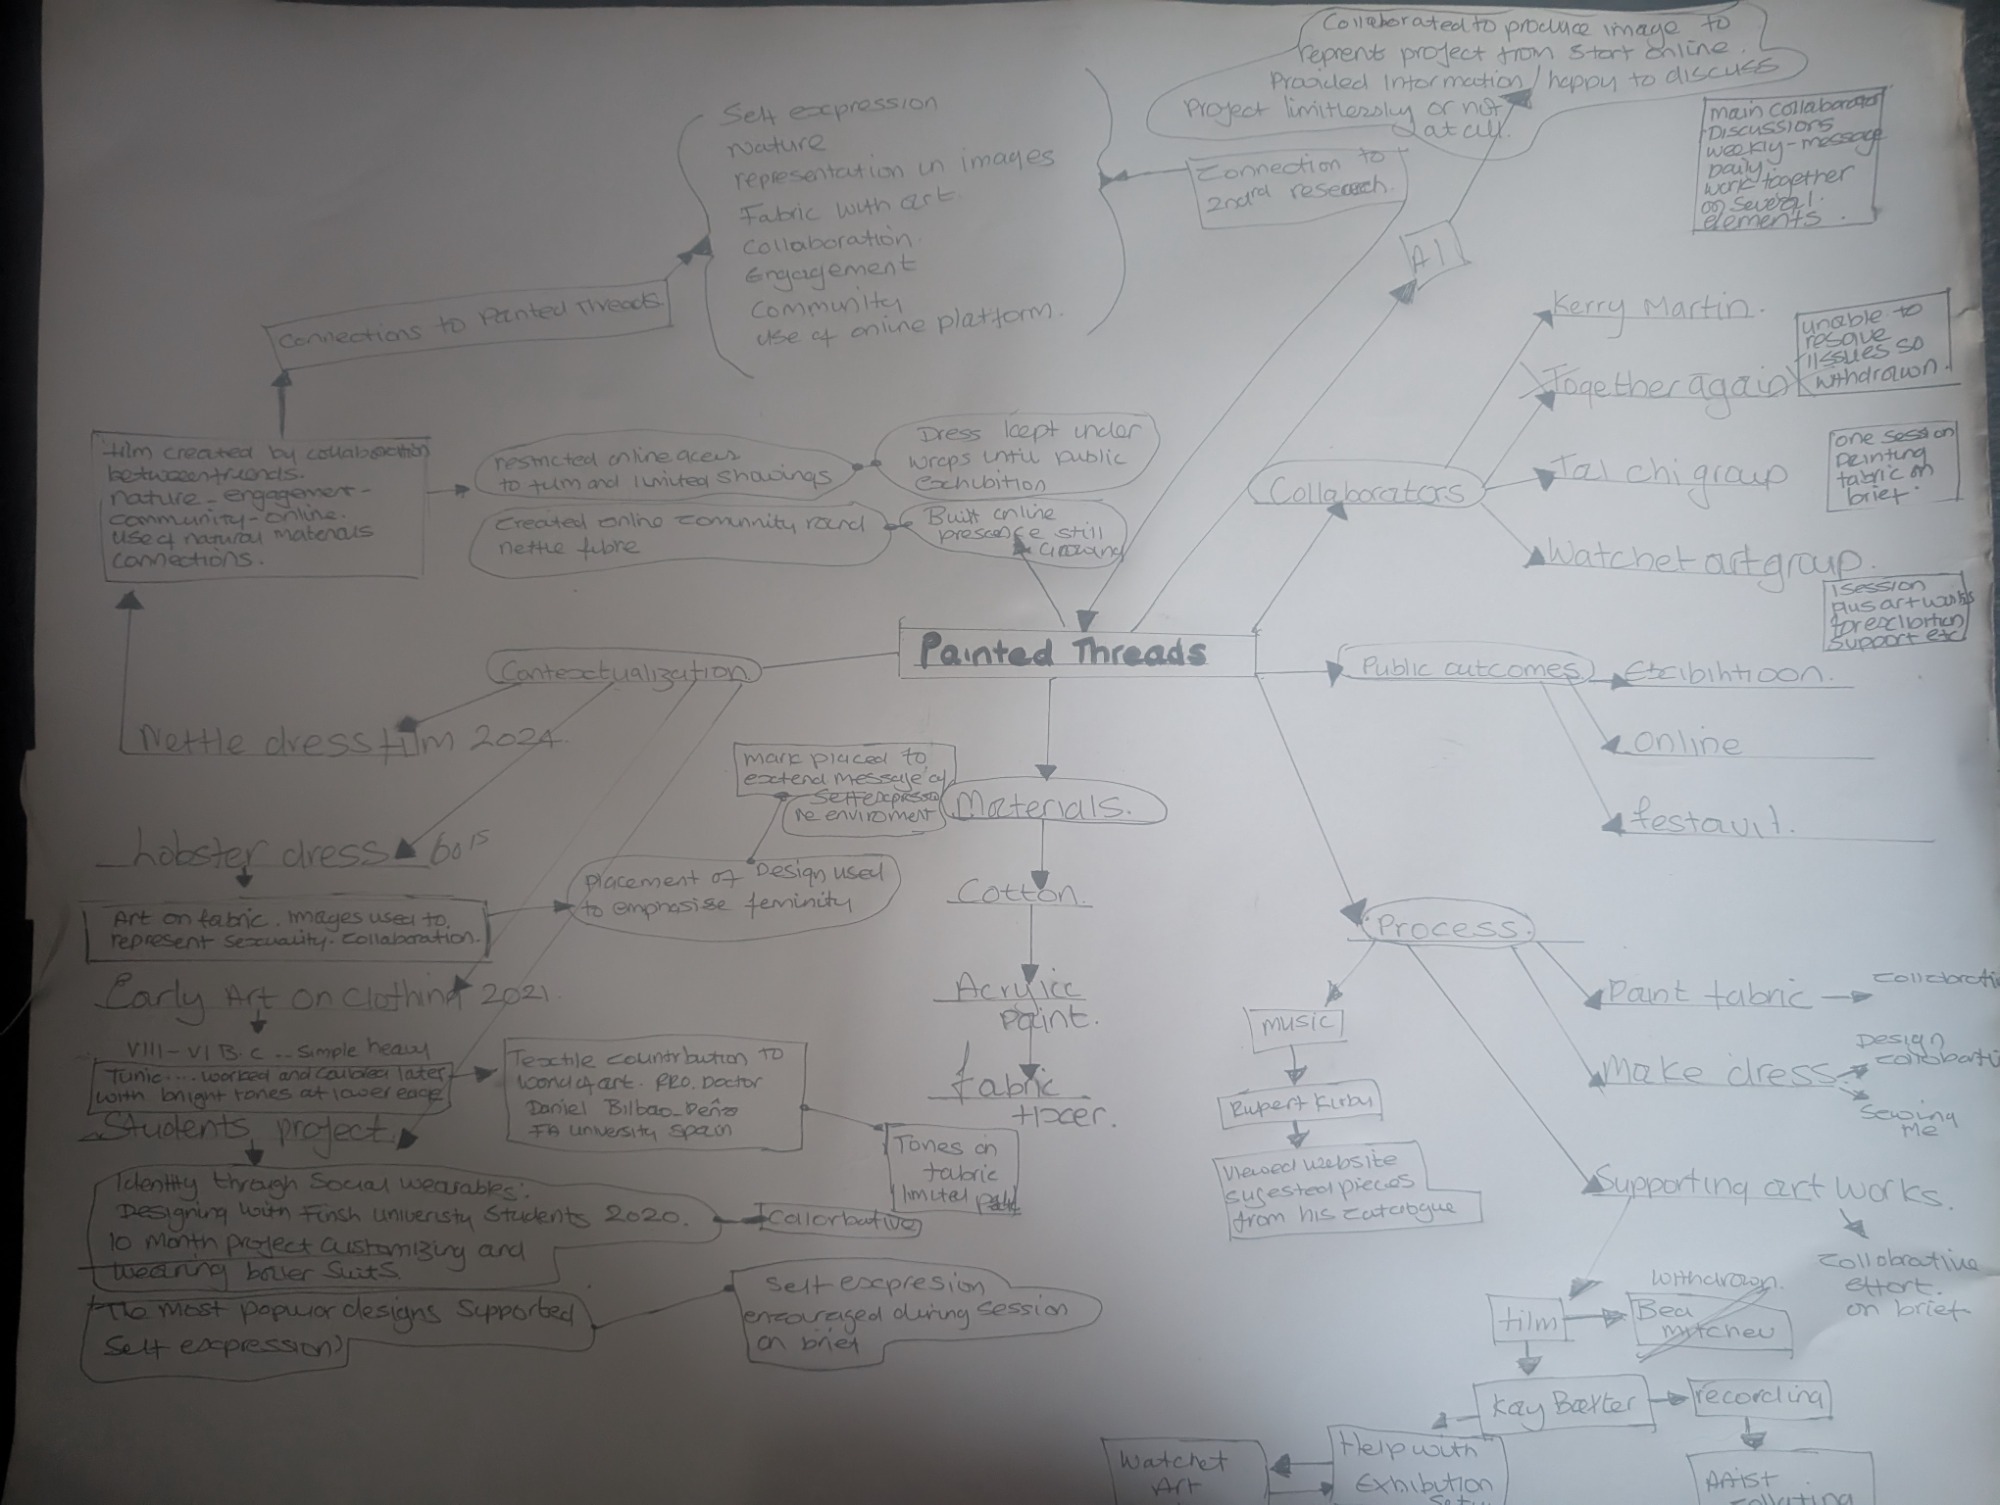 Collaborated to produce image to
reprent project from start online.
Provided Information / happy to discuss
Project limitlessley or not
at all.
main collaborator
Discussions
weekly - message
Daily
work together
on several
elements.
Self expression
Nature
representation in images
Fabric with art
collaboration.
Engagement
community
use of online platform.
Connection to
2nd rd research.
AI
Connections to Painted Threads
Kerry Martin.
unable to
resolve
issues so
withdrawn.
Together again
Tai chi group
one session
painting
fabric on
brief.
Collaborators
Watchet art group.
1 session
plus art works
for exibition
support etc
film created by collaboration
between friends.
nature - engagement -
community - online.
use of natural materials
connections.
restricted online acces
to film and limited showings
Dress kept under
wraps until public
exhibition
Created online comunnity round
nettle fibre
Built online
prescence still
growing
Painted Threads
Contextualization
Nettle dress film 2024.
Lobster dress 60's
Art on fabric. Images used to
represent sexuality. collaboration.
placement of Design used
to emphasise feminity
mark placed to
extend message of
Self expression
re enviroment
Early Art on Clothing 2021.
VIII - VI B.C ... Simple heavy
Tunic .... worked and coubled later
with bright tones at lower edge
Textile countribution to
world of art. PRO. Doctor
Daniel Bilbao-Peña
FA university Spain
Tones on
fabric
limited
Students project
Identity through Social wearables:
Designing with Finsh Univeristy Students 2020.
10 month project customizing and
wearing boiler suits.
Calorbative
The most popular designs supported
self expression)
Self expresion
encouraged during session
on brief
Materials.
Cotton.
Acrylic
paint.
fabric
fixer.
Public outcomes
Exibihtioon.
online
festavil.
Process.
Paint fabric
Make dress
Design
Sewing
me
Supporting art works.
Collobrative
effort.
on brief
music
Rupert Kirby
viewed website
sugested pieces
from his catalogue
film
withdrawn.
Bea
Mitchell
Kay Baxter
recording
Help with
Exhibution
Watchet
Art
Artist